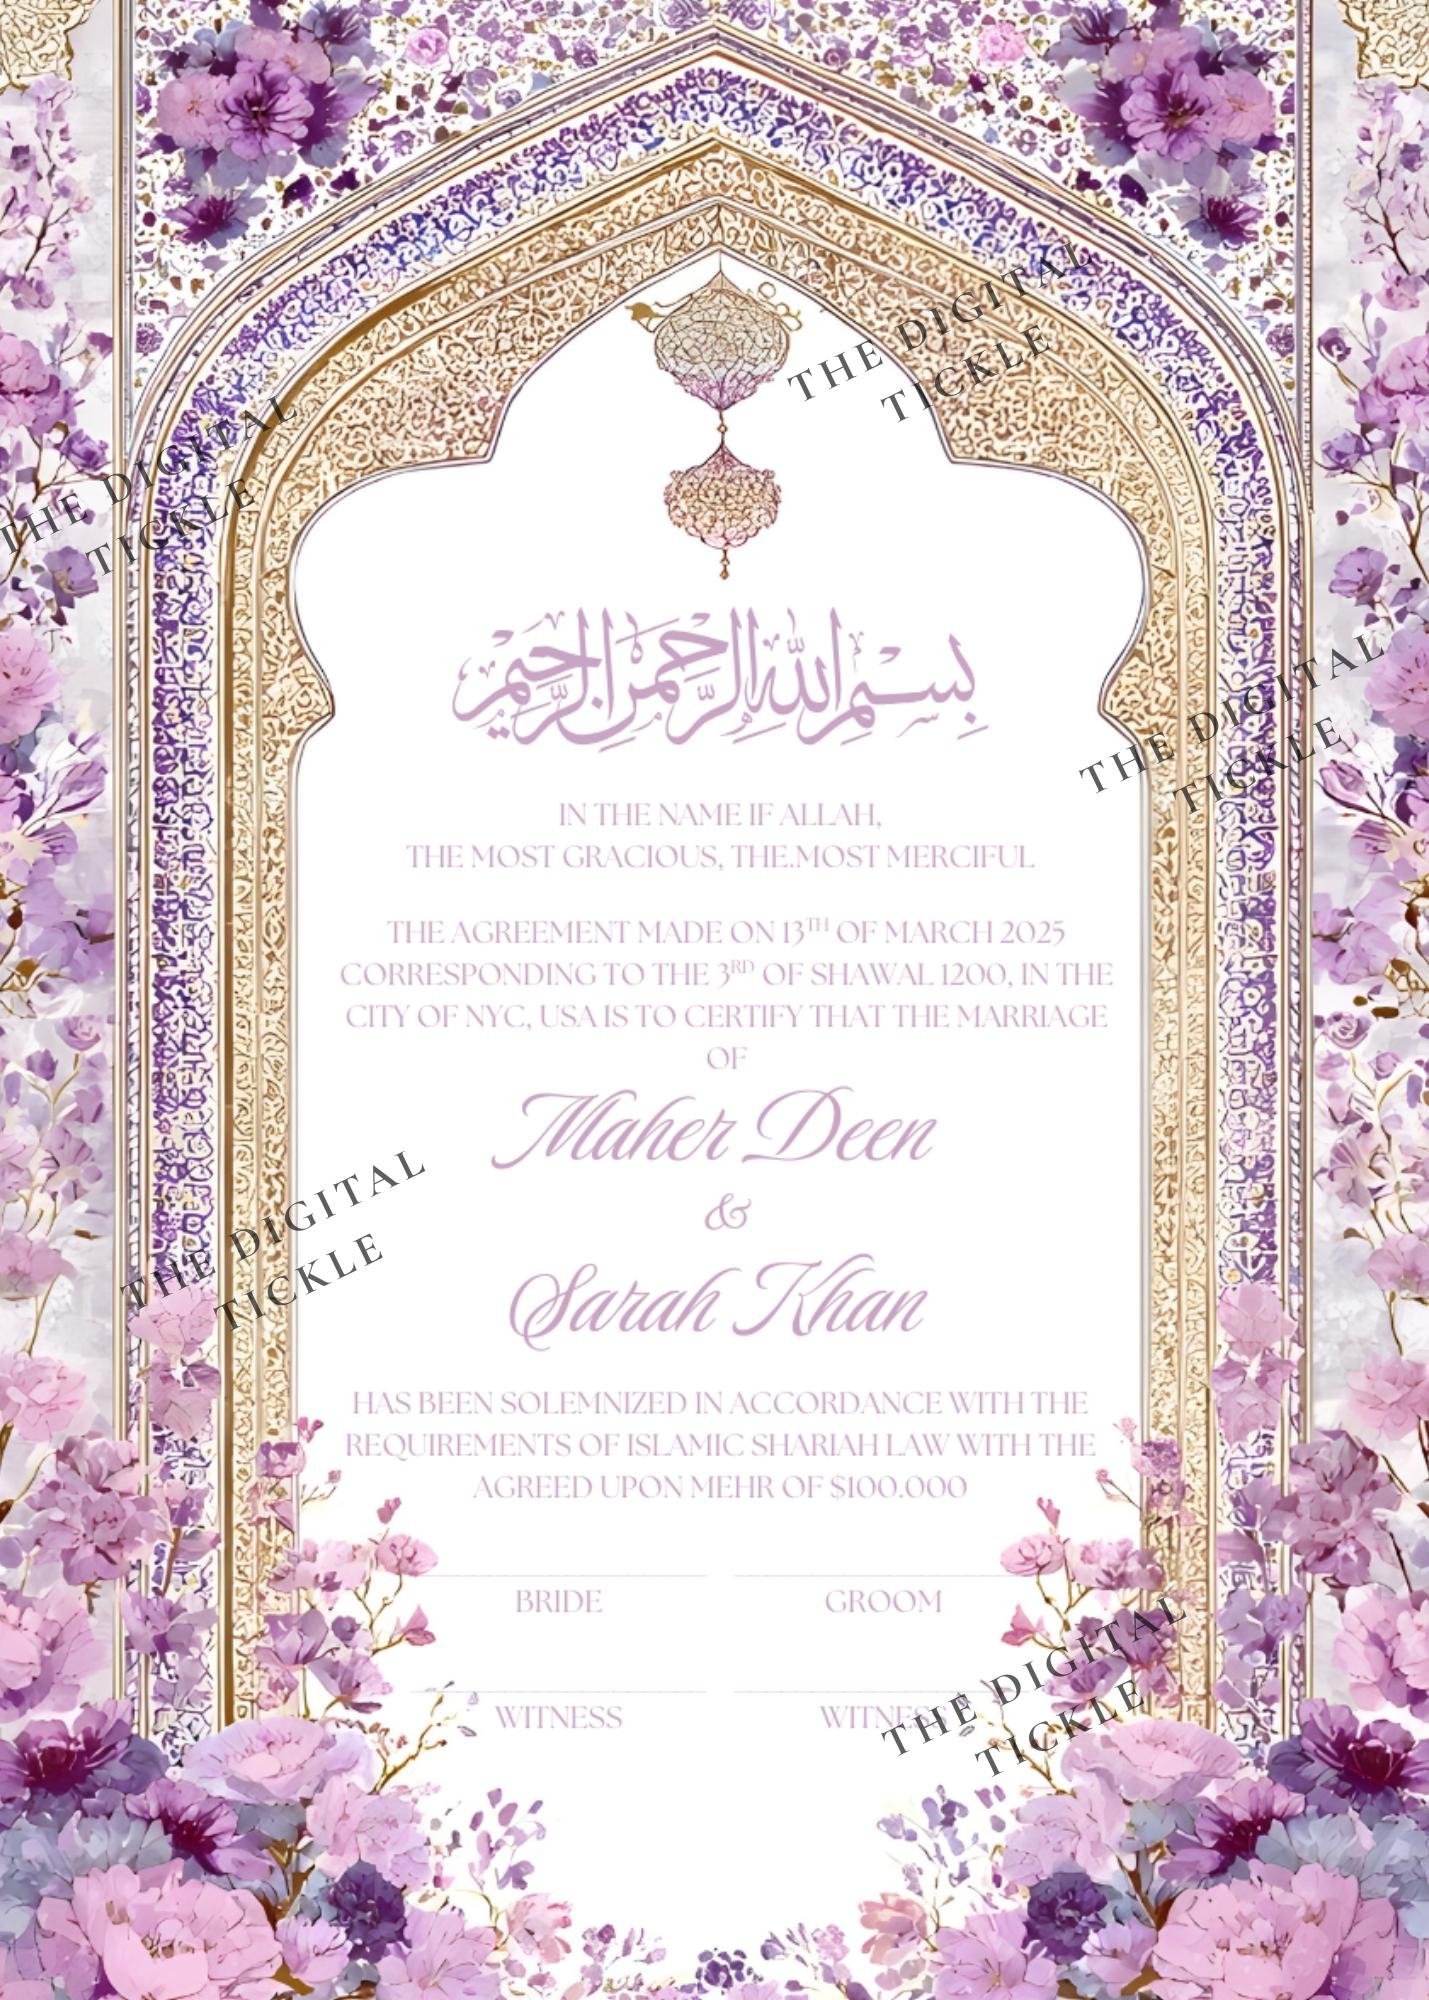 THE DIGITAL
TICKLE
THE DIGITAL
TICKLE
بسم الله الرحمن الرحيم
THE DIGITAL
TICKLE
IN THE NAME IF ALLAH,
THE MOST GRACIOUS, THE.MOST MERCIFUL
THE AGREEMENT MADE ON 13TH OF MARCH 2025
CORRESPONDING TO THE 3RD OF SHAWAL 1200, IN THE
CITY OF NYC, USA IS TO CERTIFY THAT THE MARRIAGE
OF
Maher Deen
&
Sarah Khan
THE DIGITAL
TICKLE
HAS BEEN SOLEMNIZED IN ACCORDANCE WITH THE
REQUIREMENTS OF ISLAMIC SHARIAH LAW WITH THE
AGREED UPON MEHR OF $100.000
BRIDE GROOM
WITNESS WITNESS
THE DIGITAL
TICKLE